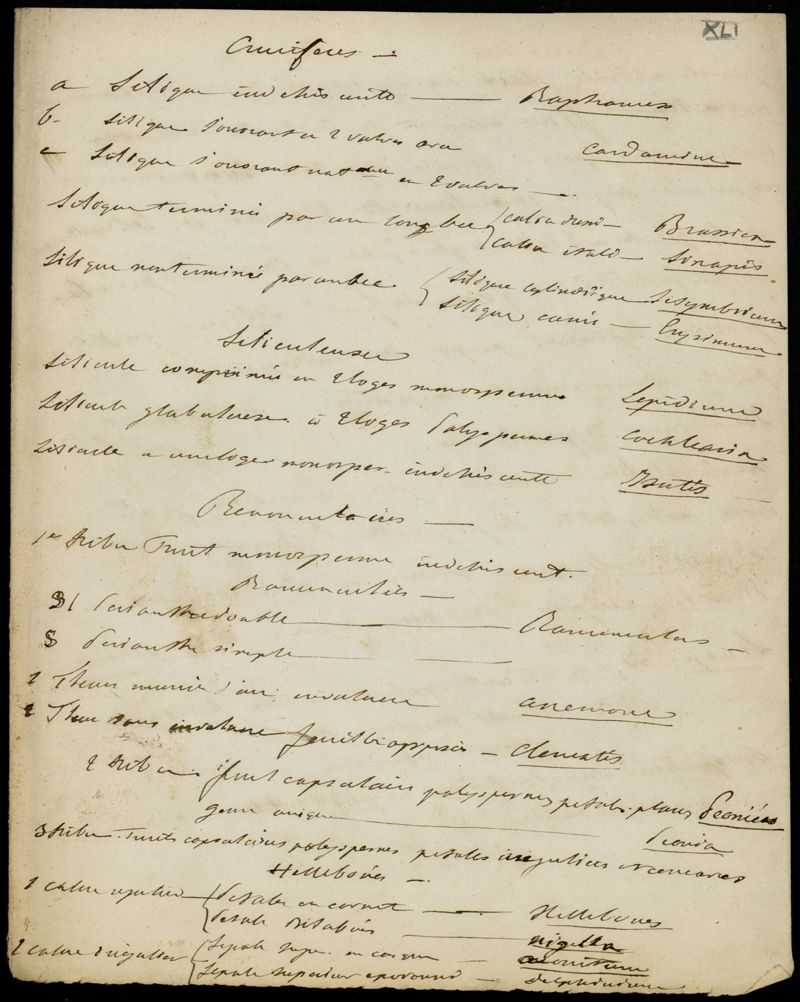 XLI
Crucifères
a Silique indéhiscente — Raphanus
b - Silique s'ouvrant en 2 valves Cardamine
c Silique s'ouvrant en 2 valves —
Silique terminée par un long bec { calice dressé — Brassica
calice étalé — Sinapis
Silique non terminée par un bec { Silique cylindrique Sisymbrium
Silique — Erysimum
Siliculeuses
Silicule comprimée en 2 loges monosperme Lepidium
Silicule globuleuse à 2 loges polyspermes Cochlearia
Silicule a une loge monosper. indéhiscente Isatis
Renonculacées —
1re tribu Fruit monosperme indéhiscent.
Renonculées —
§ 1 Perianthe double — Ranunculus —
§ Perianthe simple —
1 Fleurs munie d'un involucre anemone
2 Fleur sans involucre feuilles opposées — Clematis
2 tribu fruit capsulaire polyspermes petals. plans Peoniées
genre unique — Peonia
3 tribu. Fruits capsulaires polyspermes petales irreguliers
Hellebores —
1 calice regulier { Petales en cornet — Hellebores
Petale — nigella
2 calice irregulier { Sepale supe. en casque — aconitum
Sepale superieur eperonné — delphinium